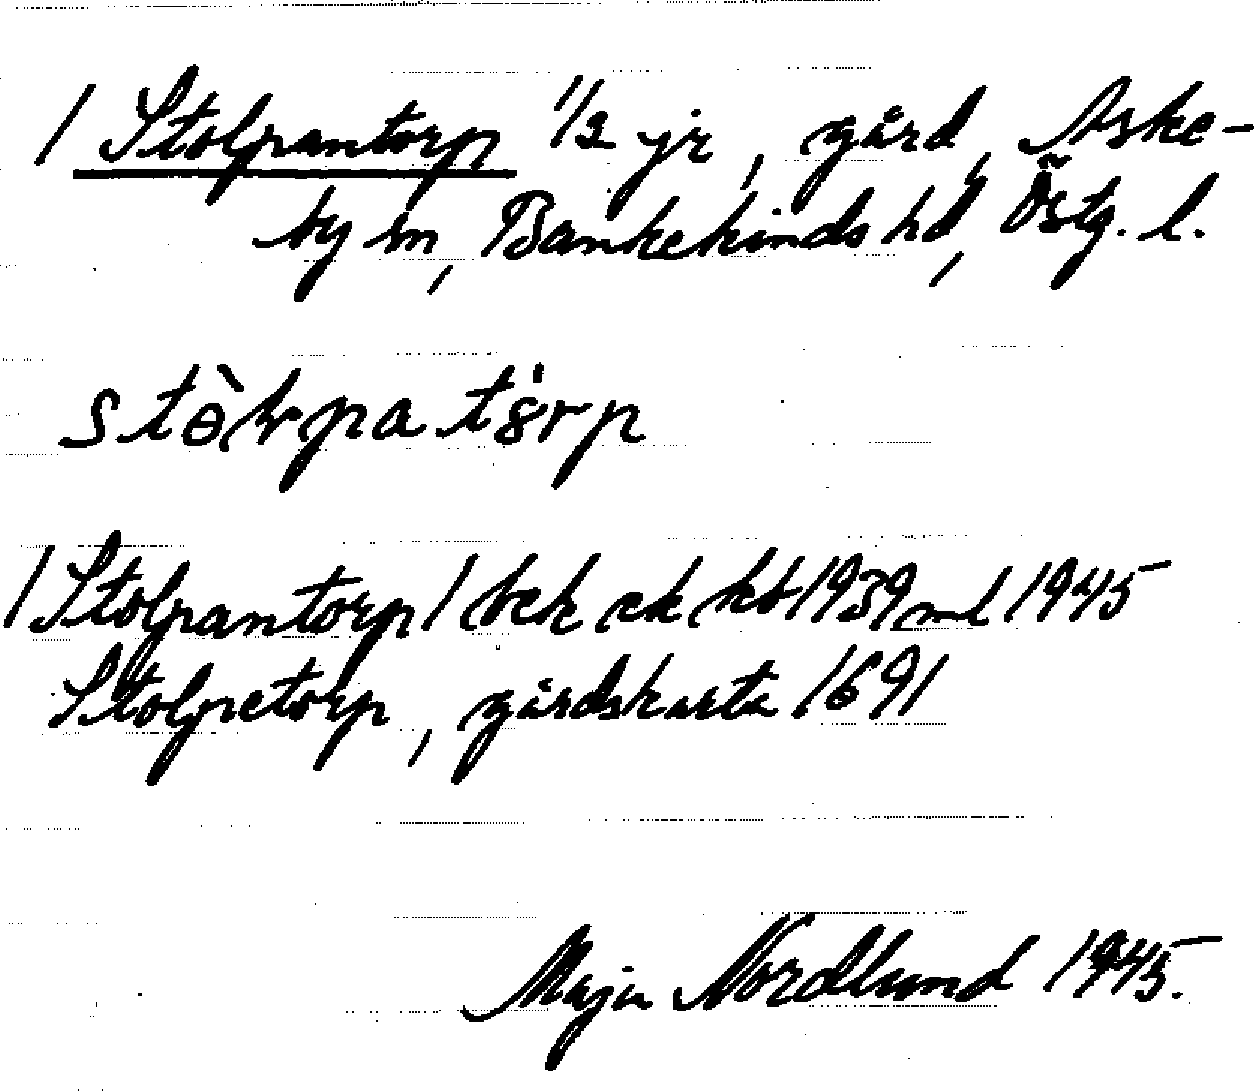 / Stolpantorp 1/2 jr, gård, Aske-
by sn, Bankekinds hd, Östg. l.
/ Stolpantorp / bek ek kb 1939 ml 1945
Stolpetorp, gårdskarta 1691
Maja Nordlund 1945.